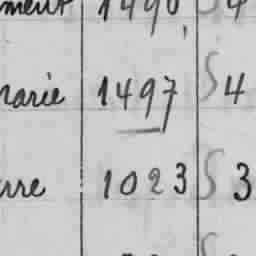 1490 S 4
narie 1497 S 4
rre 1023 S 3